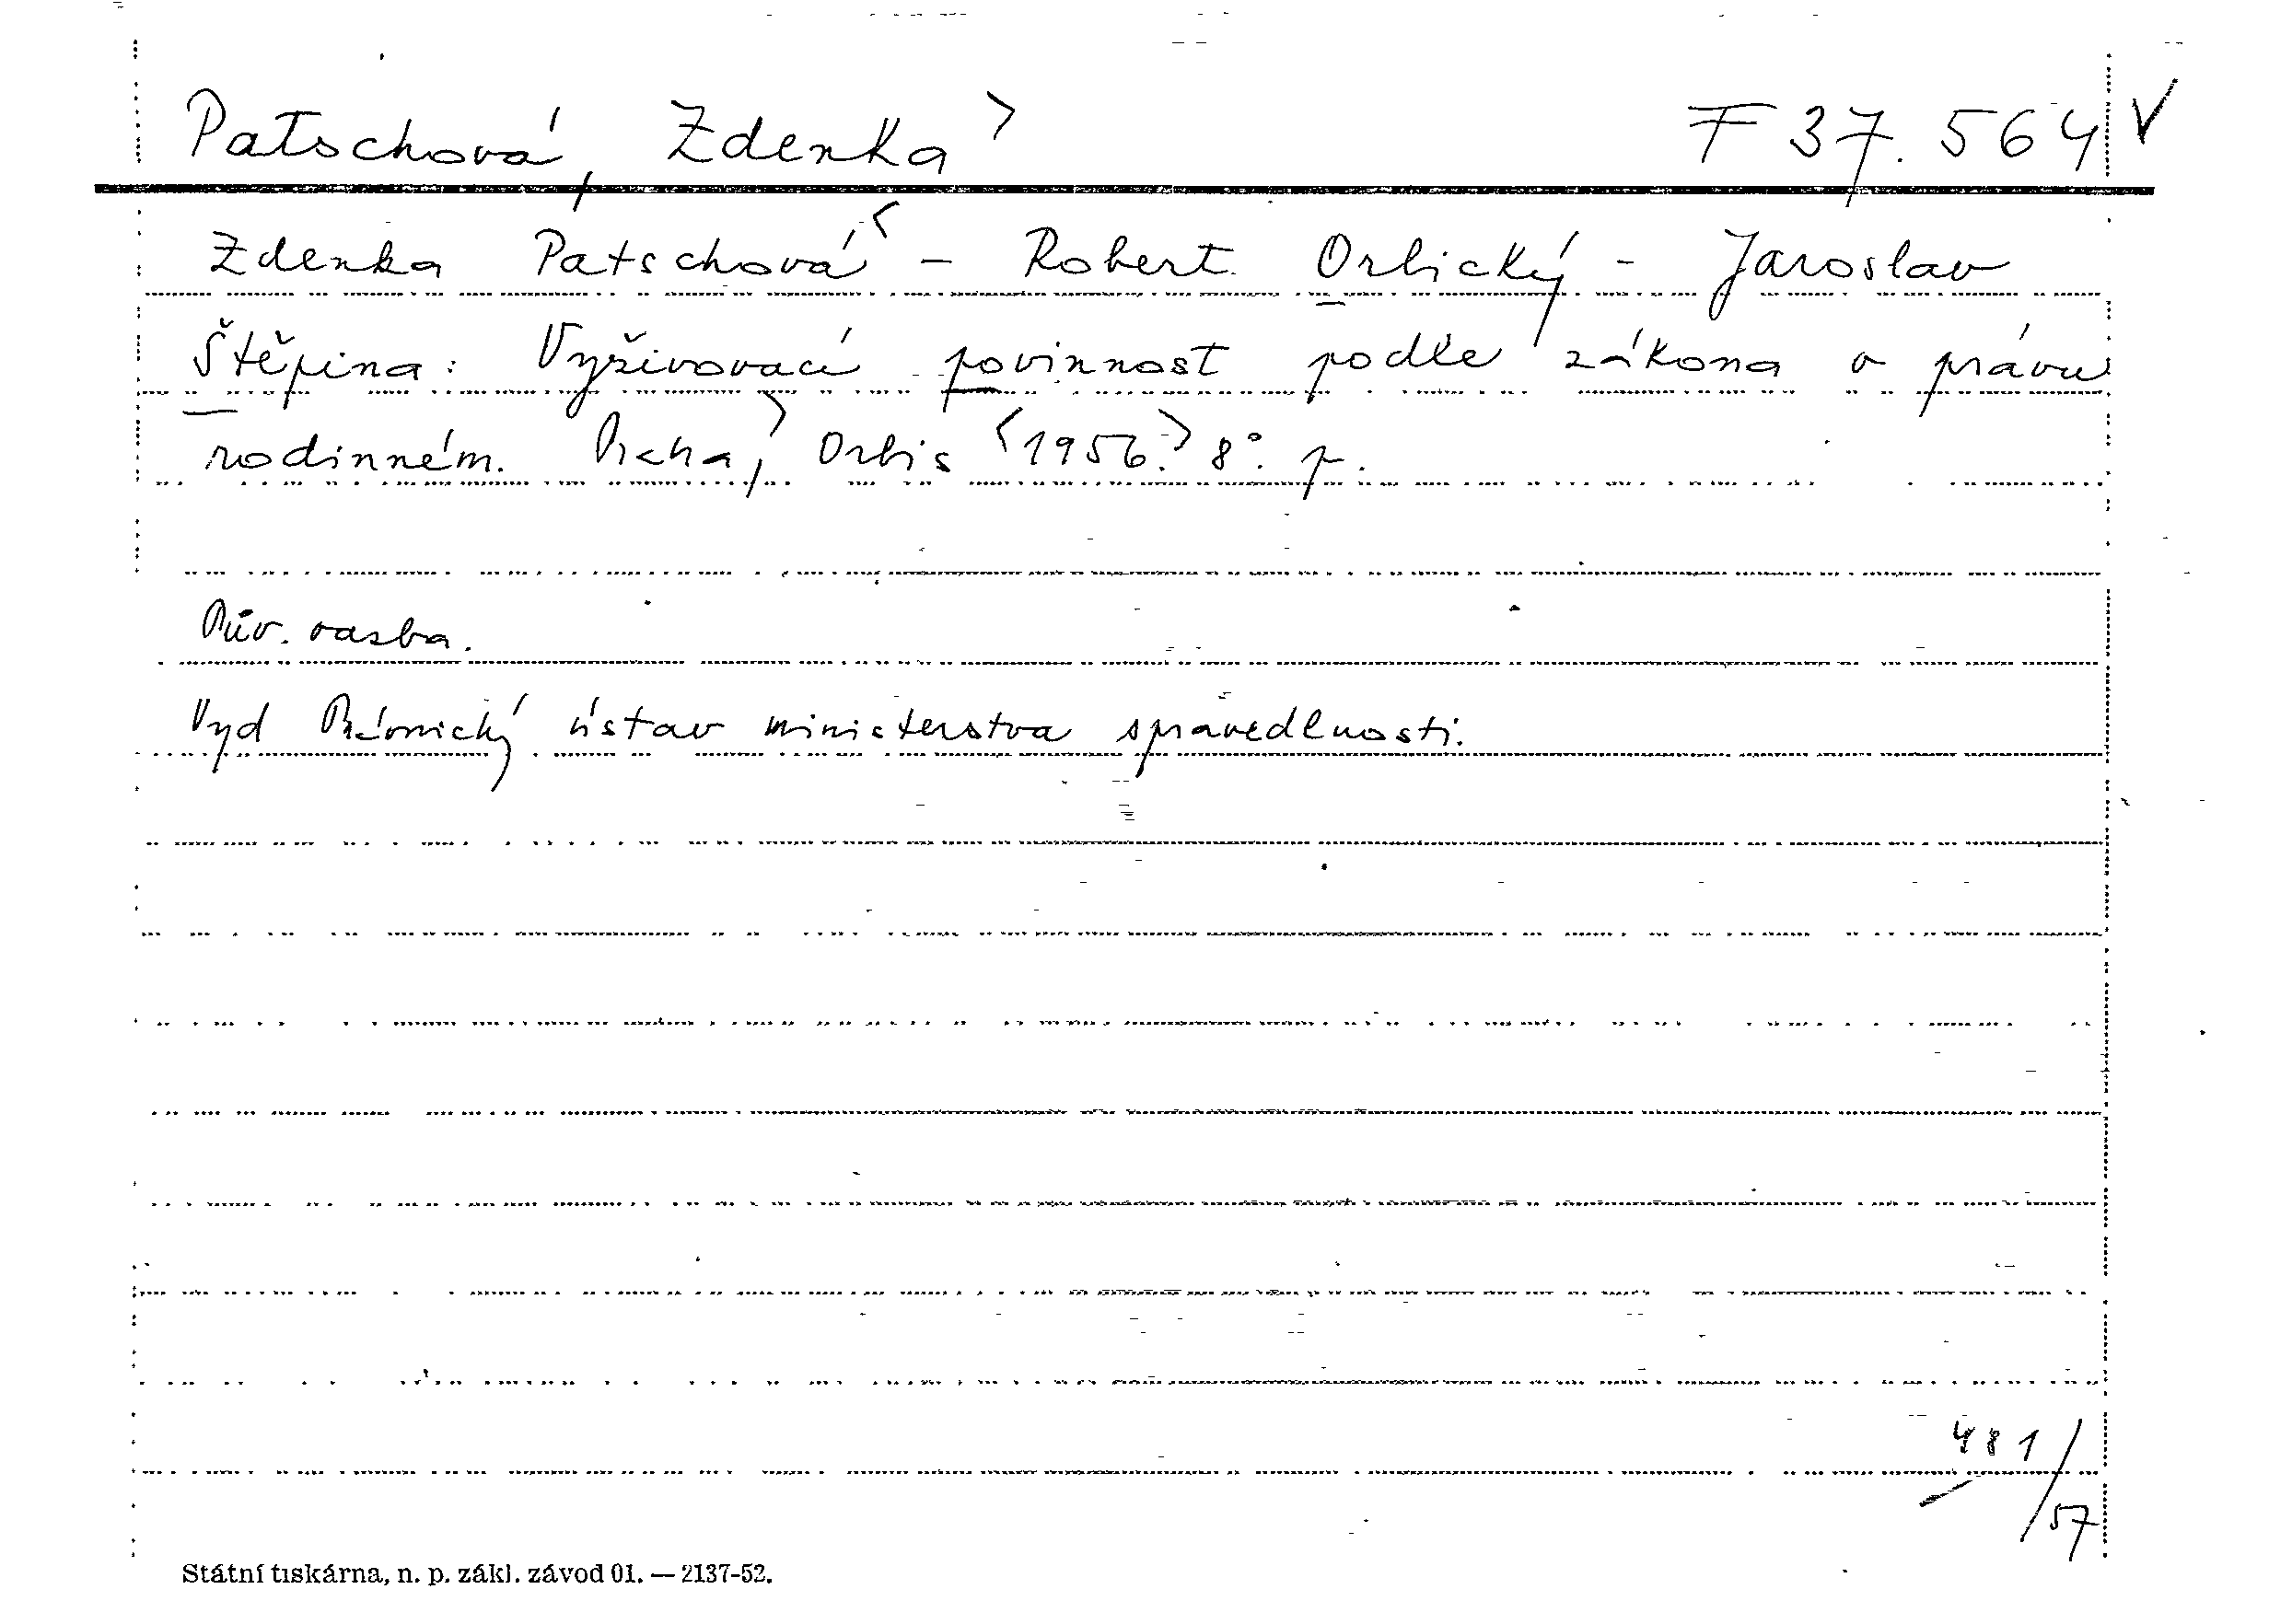 Patschová, Zdenka > F 37.564 V
Zdenka Patschová < - Robert Orlický - Jaroslav
Štěpina: Vyživovací povinnost podle zákona o právu
rodinném. Praha, > Orbis <1956.> 8°. p.
Pův. vazba.
Vyd Právnický ústav ministerstva spravedlnosti.
481/57
Státní tiskárna, n. p. zákl. závod 01. — 2137-52.